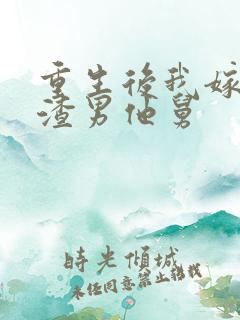 重生後我嫁
渣男他舅
時光傾城
未经同意禁止转载